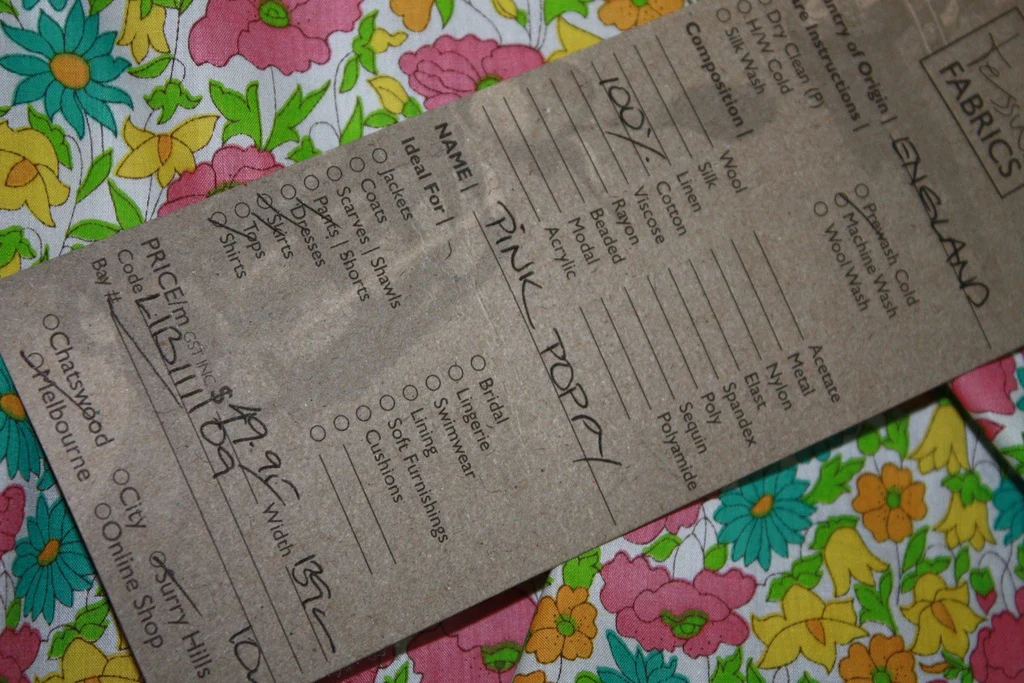 Tessuti
FABRICS
ntry of Origin | ENGLAND
re Instructions |
Dry Clean (P)
H/W Cold
Silk Wash
Prewash Cold
Machine Wash
Wool Wash
Composition |
Wool
Silk
Linen
100% Cotton
Viscose
Rayon
Beaded
Modal
Acrylic
Acetate
Metal
Nylon
Elast
Spandex
Poly
Sequin
Polyamide
NAME | PINK POPPY
Ideal For |
Jackets
Coats
Scarves | Shawls
Pants | Shorts
Dresses
Skirts
Tops
Shirts
Bridal
Lingerie
Swimwear
Lining
Soft Furnishings
Cushions
PRICE/m GST INC $ 49.95 Width 135c
Code LIB111109
Bay #
Chatswood
Melbourne
City
Online Shop
Surry Hills